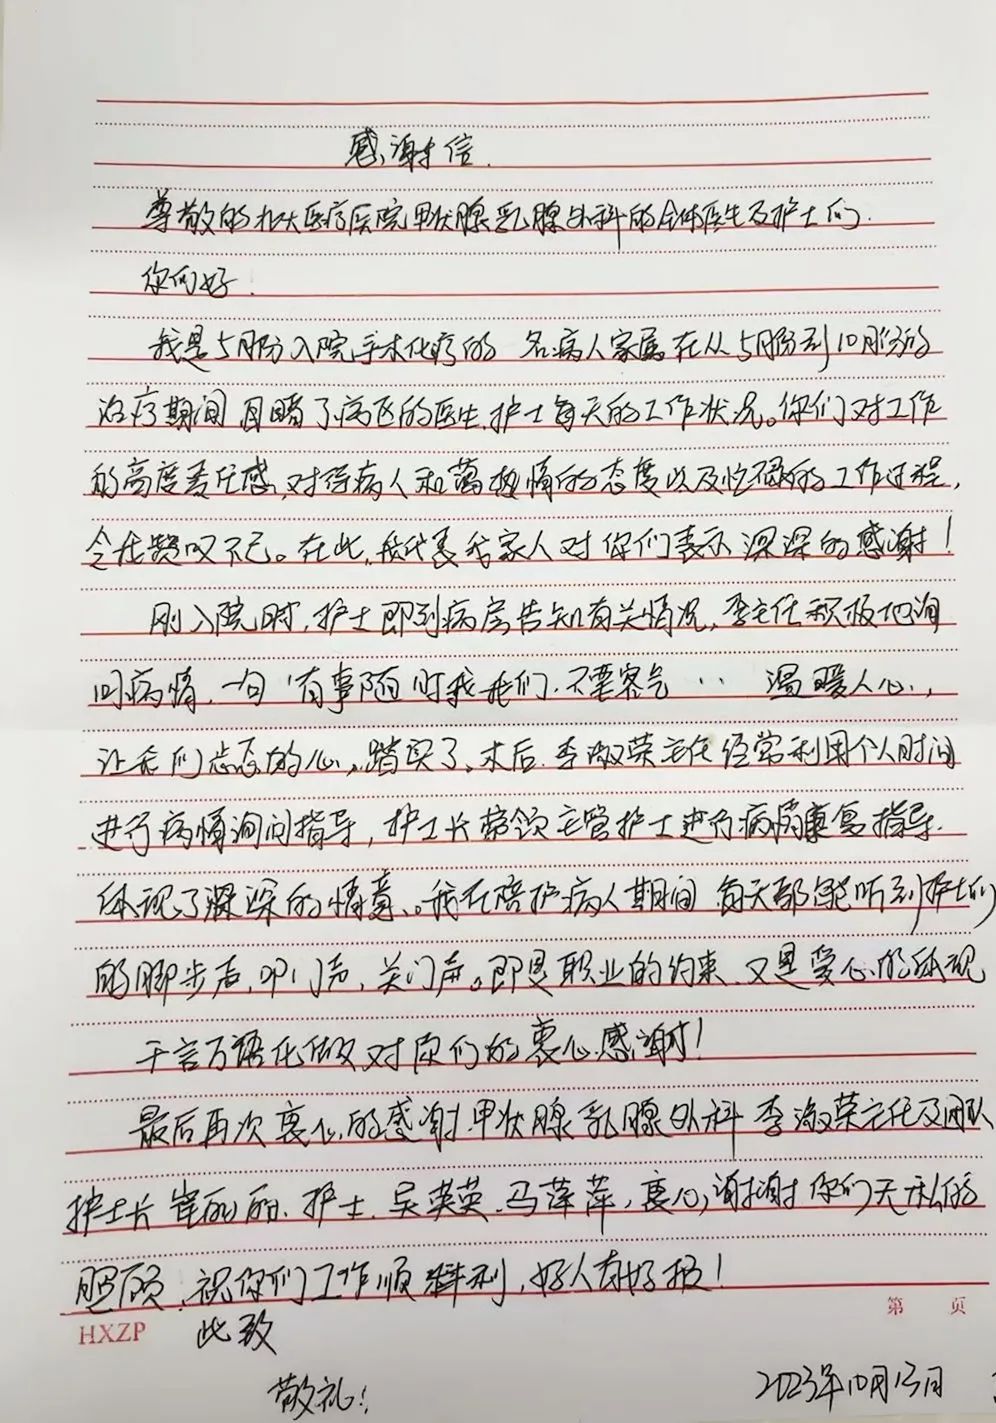 感谢信.
尊敬的北大医疗医院甲状腺乳腺外科的全体医生及护士们.
你们好!
我是5月份入院手术化疗的 名病人家属在从5月份到10月份的
治疗期间目睹了病区的医生.护士每天的工作状况。你们对工作
的高度责任感,对待病人和蔼热情的态度以及忙碌的工作过程,
令在赞叹不已。在此,我代表我家人对你们表示深深的感谢!
刚入院时,护士即到病房告知有关情况,李主任积极地询
问病情,一句"有事随时找我们.不要客气… 温暖人心,
让我们忐忑的心,踏实了。术后.李淑荣主任经常利用个人时间
进行病情询问指导,护士长带领主管护士进行病情康复指导.
体现了深深的情意。我在陪护病人期间 每天都能听到护士们
的脚步声,叩门声,关门声。即是职业的约束、又是爱心的体现
千言万语化做对你们的衷心感谢!
最后再次衷心的感谢甲状腺乳腺外科李淑荣主任及团队
护士长崔丽丽、护士.吴英英.马萍萍,衷心谢谢你们无私的
照顾,祝你们工作顺利,好人有好报!
HXZP 此致 第 页
敬礼! 2023年10月13日